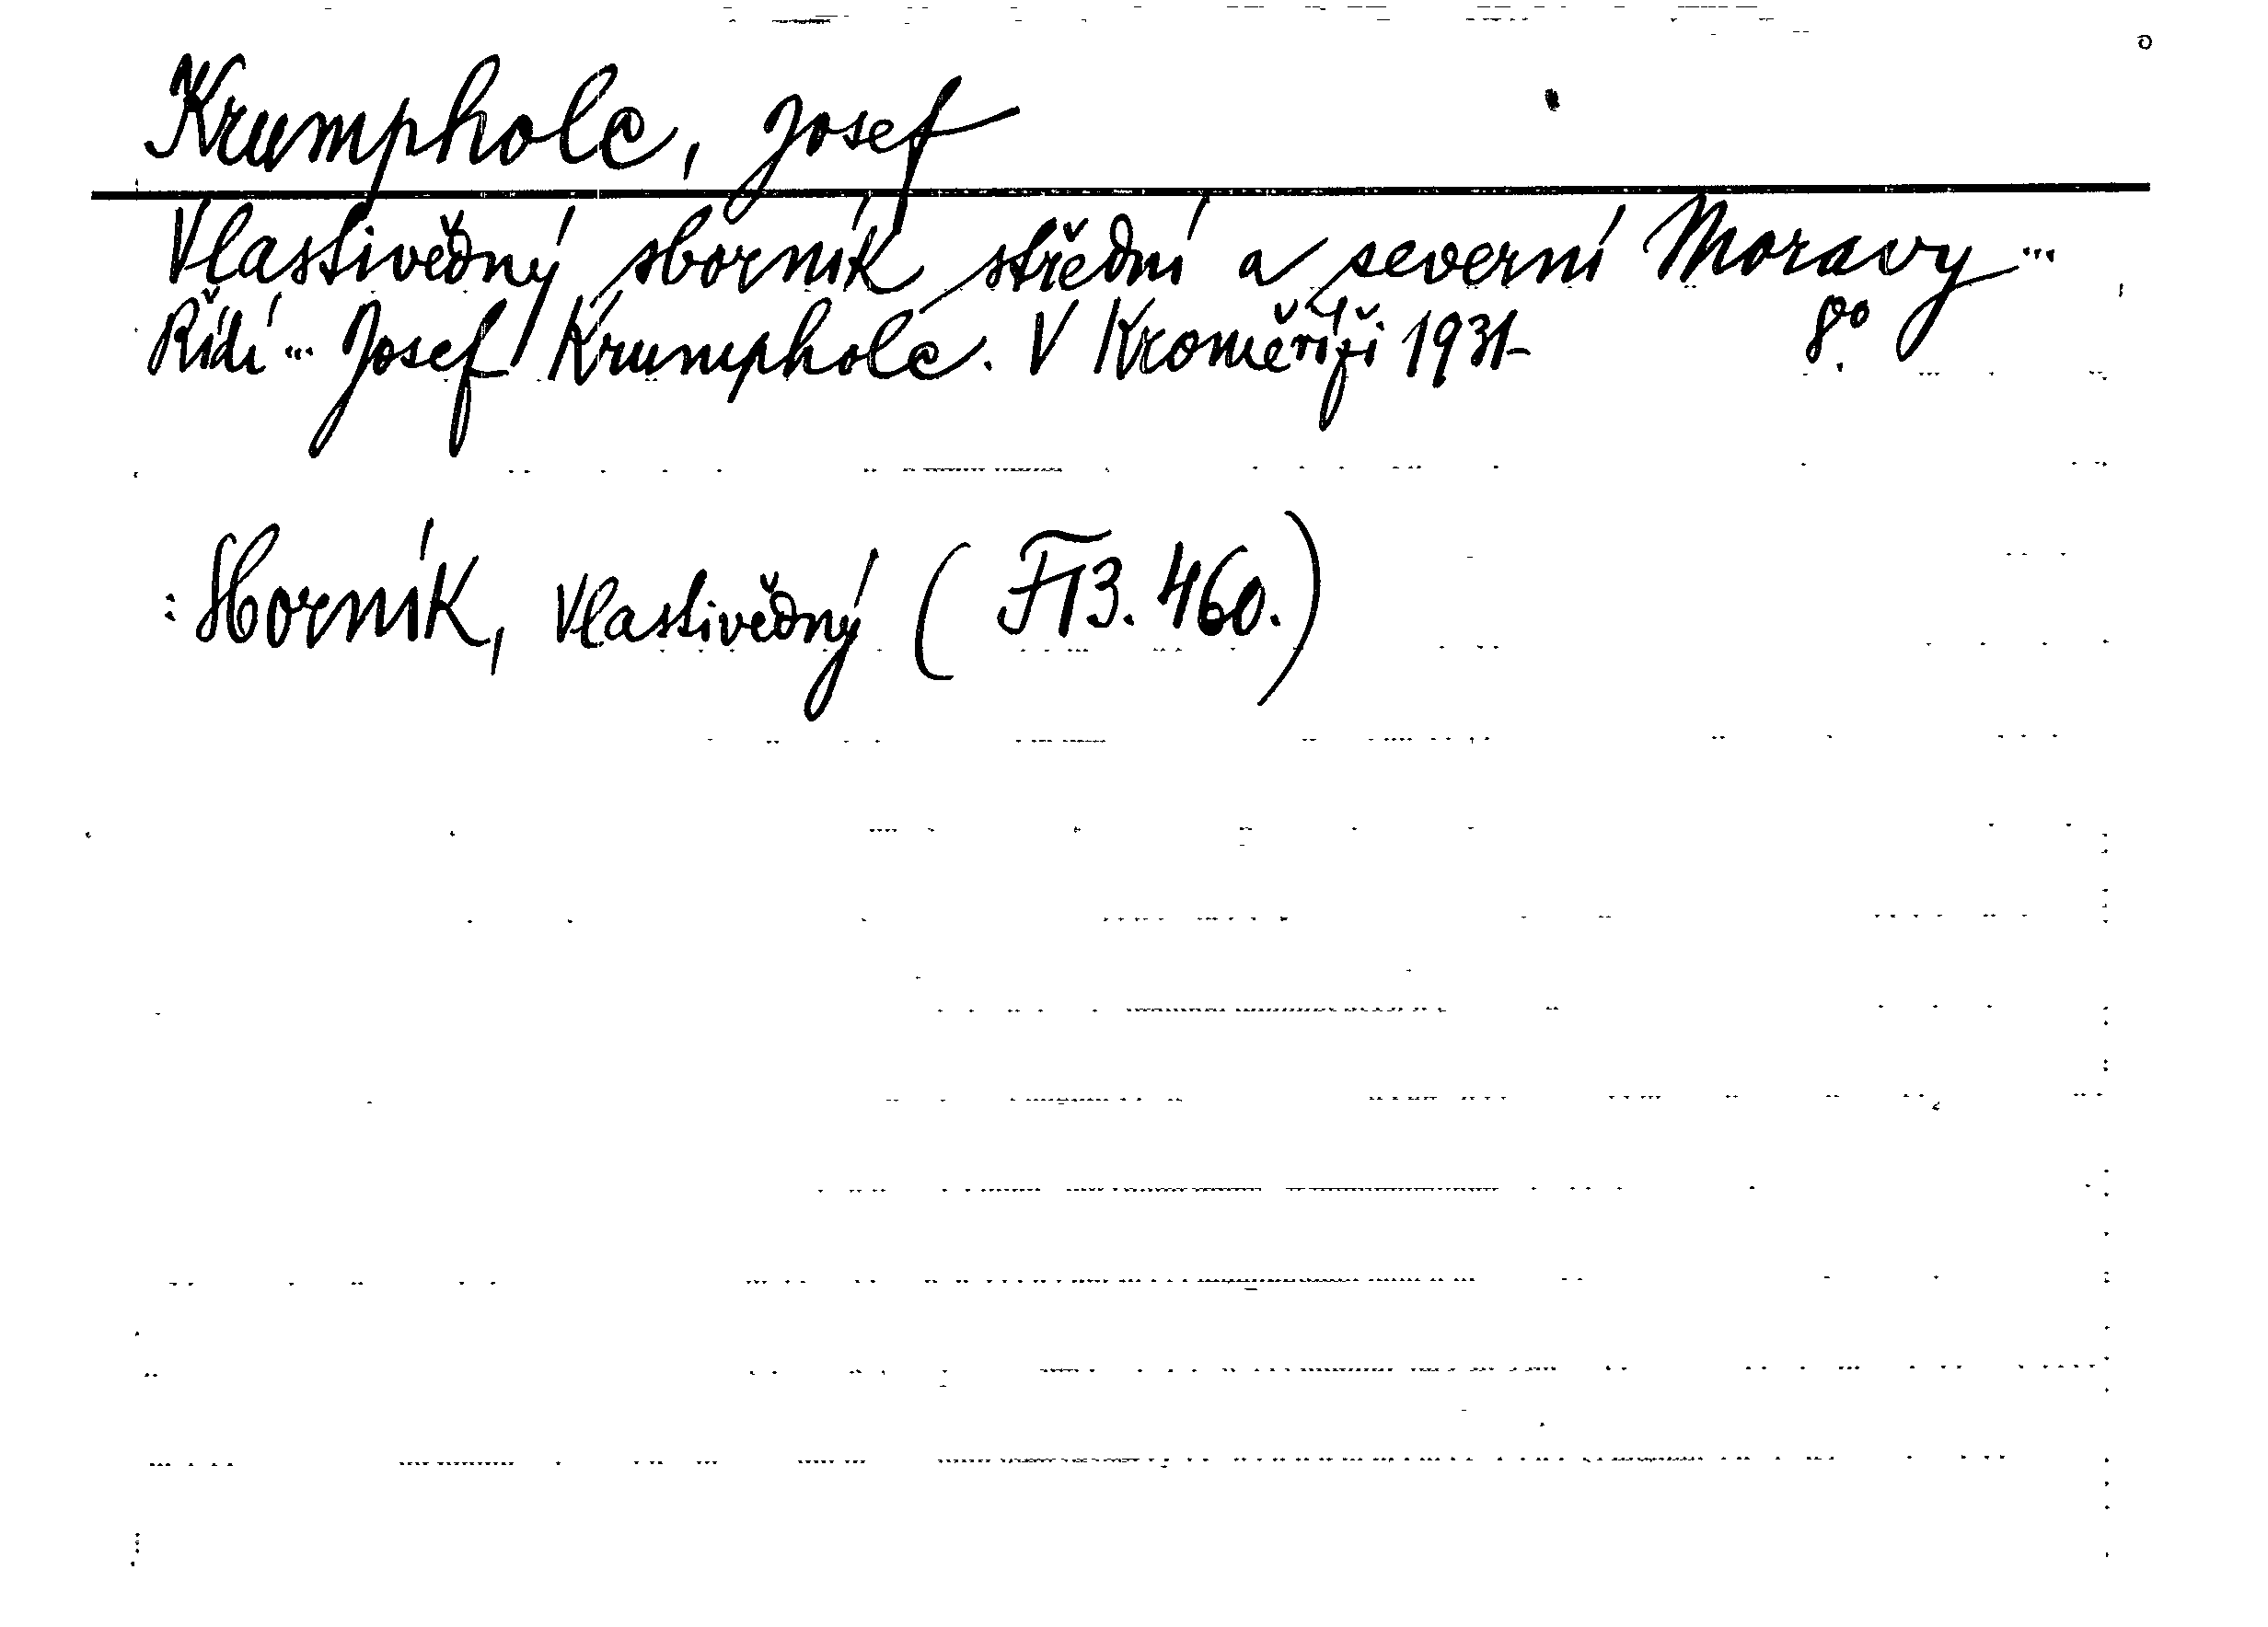 Krumpholc, Josef
Vlastivědný sborník střední a severní Moravy...
Řídí... Josef Krumpholc. V Kroměříži 1931- 8°.
: Sborník, Vlastivědný (F13.460.)